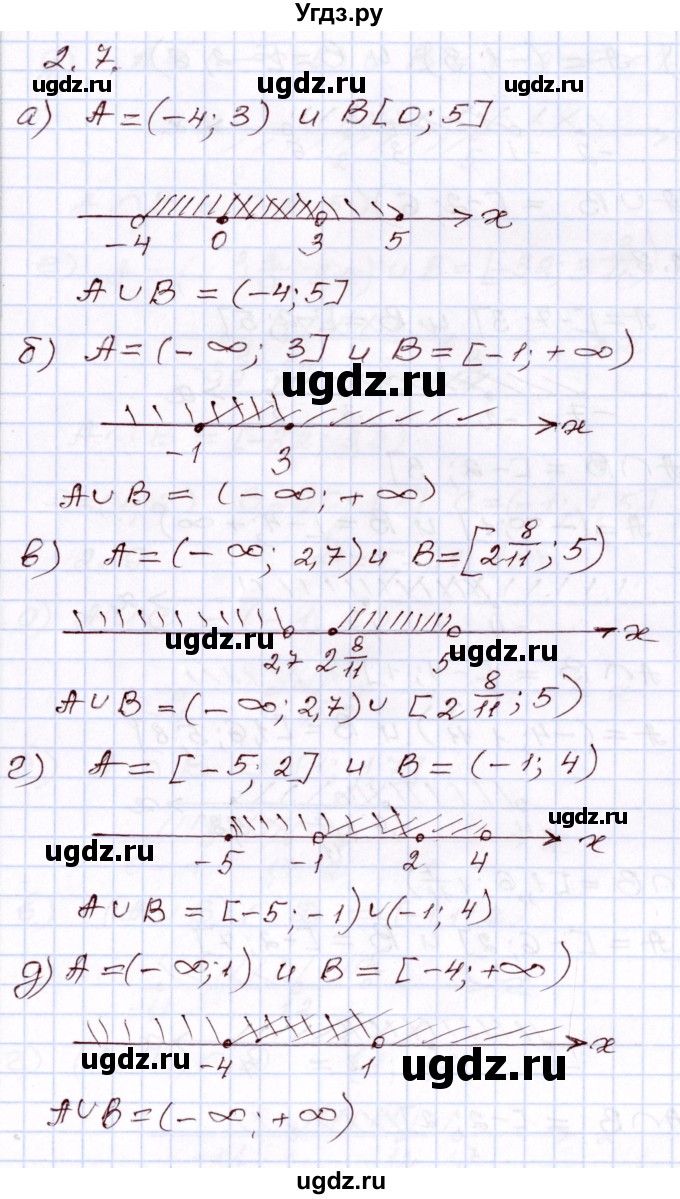 Угдз.ру
2.7.
ugdz.ru ugdz.ru
а) A = (-4; 3) и B[0; 5]
-4 0 3 5 x
A∪B = (-4; 5]
б) A = (-∞; 3] и B = [-1; +∞)
ugdz.ru
-1 3 x
A∪B = (-∞; +∞)
в) A = (-∞; 2,7) и B = [2 8/11; 5)
2,7 2 8/11 5 x
ugdz.ru ugdz.ru
A∪B = (-∞; 2,7) ∪ [2 8/11; 5)
г) A = [-5; 2] и B = (-1; 4)
ugdz.ru
-5 -1 2 4 x
ugdz.ru
A∪B = [-5; -1) ∪ (-1; 4)
д) A = (-∞; 1) и B = [-4; +∞)
-4 1 x
ugdz.ru ugdz.ru
A∪B = (-∞; +∞)
ugdz.ru